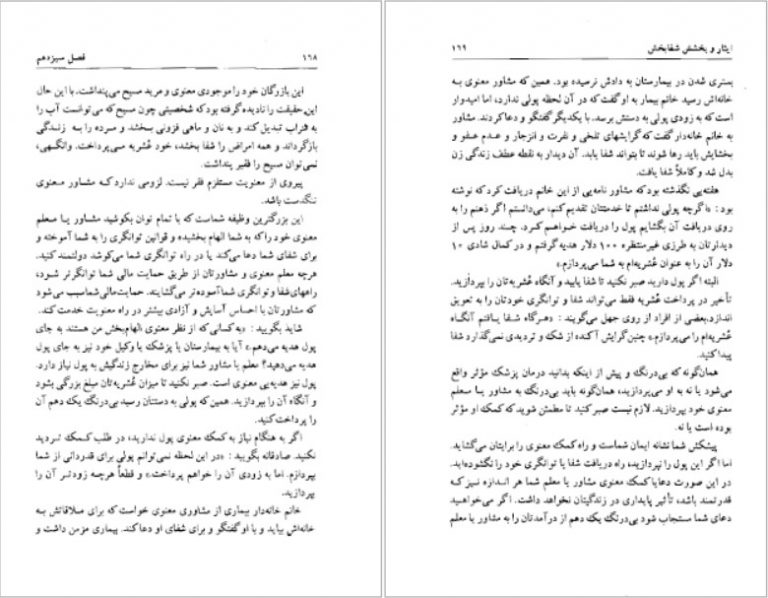 ۱۶۸ فصل سیزدهم
این بازرگان خود را موجودی معنوی و مرید مسیح می‌پنداشت. با این حال
این حقیقت را نادیده گرفته بود که شخصیتی چون مسیح که می‌توانست آب را
به شراب تبدیل کند و به نان و ماهی فزونی بخشد و مرده را به زندگی
بازگرداند و همه امراض را شفا بخشد، خود عُشریه می‌پرداخت. وانگهی،
نمی‌توان مسیح را فقیر پنداشت.
پیروی از معنویت مستلزم فقر نیست. لزومی ندارد که مشاور معنوی
تنگدست باشد.
این بزرگترین وظیفه شماست که با تمام توان بکوشید مشاور یا معلم
معنوی خود را که به شما الهام بخشیده و قوانین توانگری را به شما آموخته و
برای شفای شما دعا می‌کند یا در راه توانگری شما می‌کوشد دولتمند کنید.
هرچه معلم معنوی و مشاورتان از طریق حمایت مالی شما توانگرتر شود،
راههای شفا و توانگری شما آسوده‌تر می‌گشایند. حمایت مالی شما سبب می‌شود
که مشاورتان با احساس آسایش و آزادی بیشتر در راه معنویت خدمت کند.
شاید بگویید: «به کسانی که از نظر معنوی الهام‌بخش من هستند به جای
پول هدیه می‌دهم.» آیا به بیمارستان یا پزشک یا وکیل خود نیز به جای پول
هدیه می‌دهید؟ معلم یا مشاور شما نیز برای مخارج زندگیش به پول نیاز دارد.
پول نیز هدیه‌یی معنوی است. صبر نکنید تا میزان عُشریه‌تان مبلغ بزرگی بشود
و آنگاه آن را بپردازید. همین که پولی به دستتان رسید بی‌درنگ یک دهم آن
را پرداخت کنید.
اگر به هنگام نیاز به کمک معنوی پول ندارید، در طلب کمک تردید
نکنید. صادقانه بگویید: «در این لحظه نمی‌توانم پولی برای قدردانی از شما
بپردازم. اما به زودی آن را خواهم پرداخت.» و قطعاً هرچه زودتر آن را
بپردازید.
خانم خانه‌دار بیماری از مشاوری معنوی خواست که برای ملاقاتش به
خانه‌اش بیاید و با او گفتگو و برای شفای او دعا کند. بیماری مزمن داشت و
ایثار و بخشش شفابخش ۱۶۹
بستری شدن در بیمارستان به دادش نرسیده بود. همین که مشاور معنوی به
خانه‌اش رسید خانم بیمار به او گفت که در آن لحظه پولی ندارد، اما امیدوار
است که به زودی پولی به دستش برسد. با یکدیگر گفتگو و دعا کردند. مشاور
به خانم خانه‌دار گفت که گرایشهای تلخی و نفرت و انزجار و عدم عفو و
بخشایش باید رها شوند تا بتواند شفا یابد. آن دیدار به نقطه عطف زندگی زن
بدل شد و کاملاً شفا یافت.
هفته‌یی نگذشته بود که مشاور نامه‌یی از این خانم دریافت کرد که نوشته
بود: «اگرچه پولی نداشتم تا خدمتتان تقدیم کنم، می‌دانستم اگر ذهنم را به
روی دریافت آن بگشایم پول را دریافت خواهم کرد. چند روز پس از
دیدارتان به طرزی غیرمنتظره ۱۰۰ دلار هدیه گرفتم و در کمال شادی ۱۰
دلار آن را به عنوان عُشریه‌ام به شما می‌پردازم.»
البته اگر پول دارید صبر نکنید تا شفا یابید و آنگاه عُشریه‌تان را بپردازید.
تأخیر در پرداخت عُشریه فقط می‌تواند شفا و توانگری خودتان را به تعویق
اندازد. بعضی از افراد از روی جهل می‌گویند: «هرگاه شفا یافتم آنگاه
عُشریه‌ام را می‌پردازم.» چنین گرایش آکنده از شک و تردیدی نمی‌گذارد شفا
پیدا کنید.
همان‌گونه که بی‌درنگ و پیش از اینکه بدانید درمان پزشک مؤثر واقع
می‌شود یا نه به او می‌پردازید، همان‌گونه باید بی‌درنگ به مشاور یا معلم
معنوی خود بپردازید. لازم نیست صبر کنید تا مطمئن شوید که کمک او مؤثر
بوده است یا نه.
پیشکش شما نشانه ایمان شماست و راه کمک معنوی را برایتان می‌گشاید.
اما اگر این پول را نپردازید، راه دریافت شفا یا توانگری خود را نگشوده‌اید.
در این صورت دعا یا کمک معنوی مشاور یا معلم شما هر اندازه نیز که
قدرتمند باشد، تأثیر پایداری در زندگیتان نخواهد داشت. اگر می‌خواهید
دعای شما مستجاب شود بی‌درنگ یک دهم از درآمدتان را به مشاور یا معلم